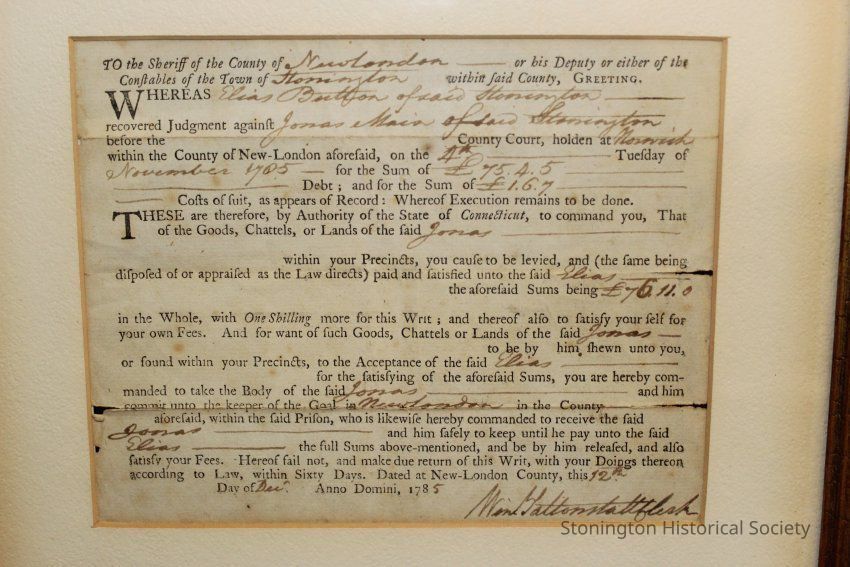 TO the Sheriff of the County of Newlondon — or his Deputy or either of the
Conſtables of the Town of Stonington within ſaid County, GREETING.
WHEREAS Elias Button of said Stonington
recovered Judgment againſt Jonas Main of said Stonington
before the County Court, holden at Norwich
within the County of New-London aforeſaid, on the 4th Tueſday of
November 1785 — for the Sum of £75.4.5
Debt; and for the Sum of £1.6.7
Coſts of ſuit, as appears of Record: Whereof Execution remains to be done.
THESE are therefore, by Authority of the State of Connecticut, to command you, That
of the Goods, Chattels, or Lands of the ſaid Jonas
within your Precincts, you cauſe to be levied, and (the ſame being
diſpoſed of or appraiſed as the Law directs) paid and ſatisfied unto the ſaid Elias
the aforeſaid Sums being £76.11.0
in the Whole, with One Shilling more for this Writ; and thereof alſo to ſatisfy your ſelf for
your own Fees. And for want of ſuch Goods, Chattels or Lands of the ſaid Jonas —
to be by him ſhewn unto you,
or found within your Precincts, to the Acceptance of the ſaid Elias
for the ſatisfying of the aforeſaid Sums, you are hereby com-
manded to take the Body of the ſaid Jonas and him
commit unto the keeper of the Goal in Newlondon in the County
aforeſaid, within the ſaid Priſon, who is likewiſe hereby commanded to receive the ſaid
Jonas and him ſafely to keep until he pay unto the ſaid
Elias the full Sums above-mentioned, and be by him releaſed, and alſo
ſatisfy your Fees. Hereof fail not, and make due return of this Writ, with your Doings thereon
according to Law, within Sixty Days. Dated at New-London County, this 12th
Day of Decr. Anno Domini, 1785
Winl Saltonstall Clerk
Stonington Historical Society